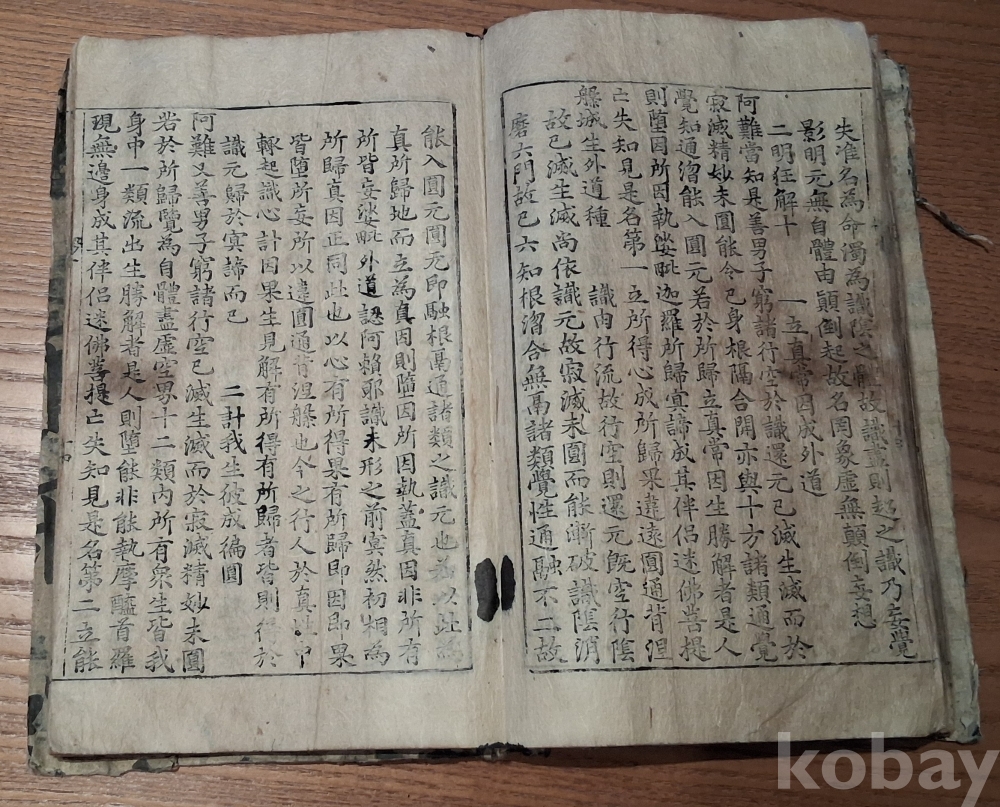 失准名為命濁為識陰之體故識盡則超之識乃妄覺
影明元無自體由顛倒起故名罔象虛無顛倒妄想
二明狂解十 一立真常因成外道
阿難當知是善男子窮諸行空於識還元已滅生滅而於
寂滅精妙未圓能令己身根隔合開亦與十方諸類通覺
覺知通㳷能入圓元若於所歸立真常因生勝解者是人
則墮因所因執娑毗迦羅所歸冥諦成其伴侶迷佛菩提
亡失知見是名第一立所得心成所歸果違遠圓通背涅
槃城生外道種 識由行流故行空則還元既空行陰
故已滅生滅尚依識元故寂滅未圓而能漸破識陰消
磨六門故已六知根㳷合無鬲諸類覺性通融不二故
能入圓元圓元即融根鬲通諸類之識元也若以此為
真所歸地而立為真因則墮因所因執蓋真因非所有
所皆妄娑毗外道認阿賴耶識未形之前冥然初相為
所歸真因正同此也以心有所得果有所歸即因即果
皆墮所妄所以違圓通背涅槃也今之行人於真性中
輙起識心計因果生見解有所得有所歸者皆則得於
識元歸於冥諦而已 二計我生彼成徧圓
阿難又善男子窮諸行空已滅生滅而於寂滅精妙未圓
若於所歸覽為自體盡虛空界十二類內所有衆生皆我
身中一類流出生勝解者是人則墮能非能執摩醯首羅
現無邊身成其伴侶迷佛菩提亡失知見是名第二立能
kobay